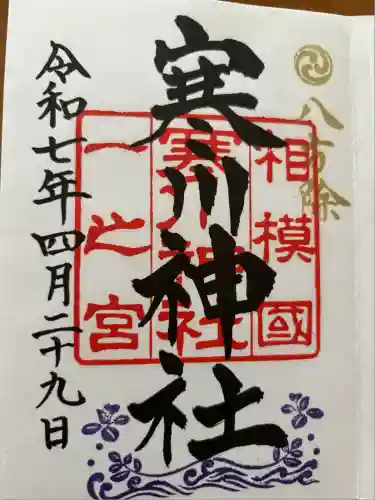 八方除
寒川神社
相模國
寒川神社
一之宮
令和七年四月二十九日